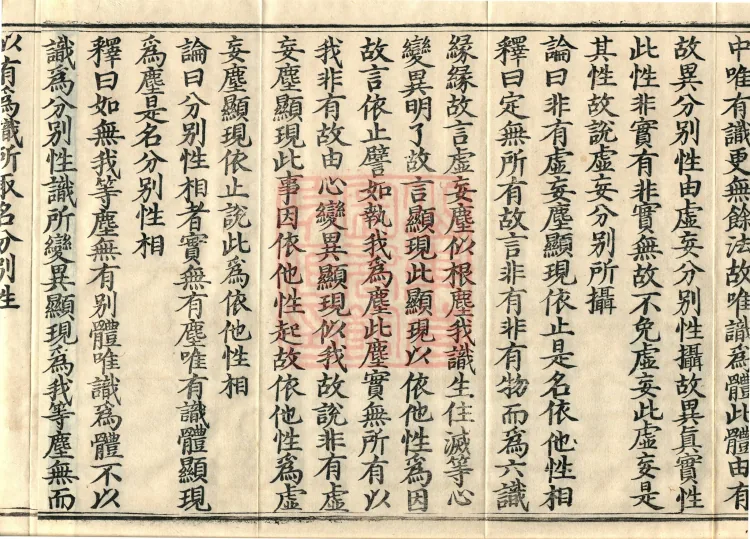 中唯有識更無餘法故唯識爲體此體由有
故異分別性由虛妄分別性攝故異眞實性
此性非實有非實無故不免虛妄此虛妄是
其性故說虛妄分別所攝
論曰非有虛妄塵顯現依止是名依他性相
釋曰定無所有故言非有非有物而爲六識
緣緣故言虛妄塵似根塵我識生住滅等心
變異明了故言顯現此顯現以依他性爲因
故言依止譬如執我爲塵此塵實無所有以
我非有故由心變異顯現似我故說非有虛
妄塵顯現此事因依他性起故依他性爲虛
妄塵顯現依止說此爲依他性相
論曰分別性相者實無有塵唯有識體顯現
爲塵是名分別性相
釋曰如無我等塵無有別體唯識爲體不以
識爲分別性識所變異顯現爲我等塵無而
似有爲識所取名分別性